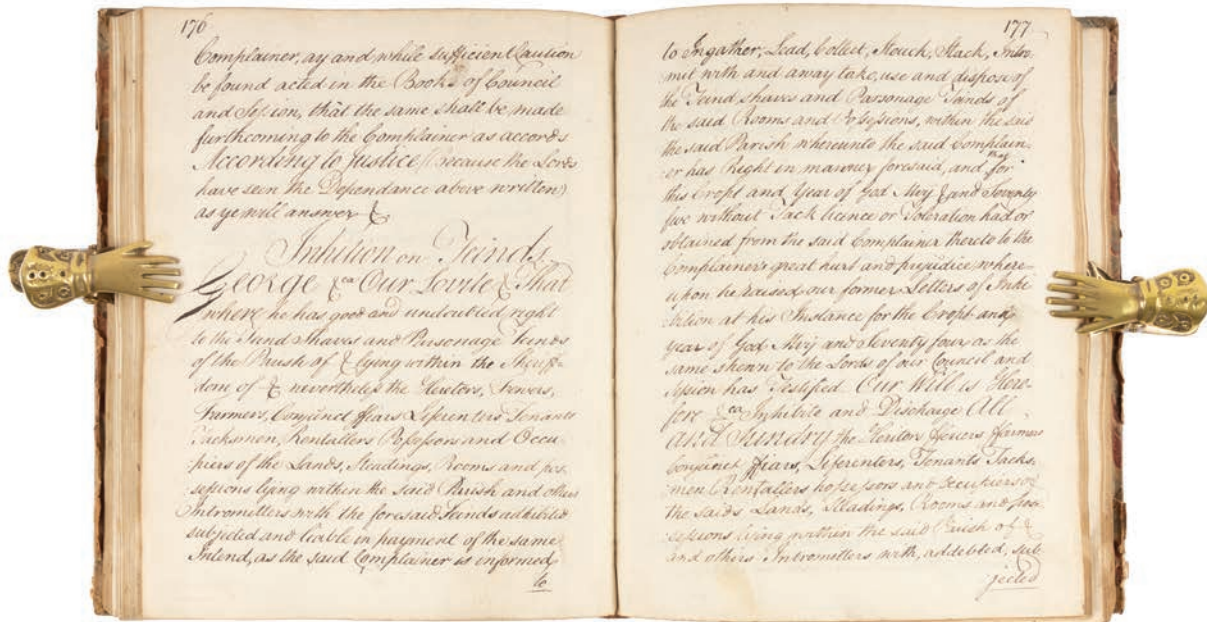 176
Complainer, ay and while sufficient Caution
be found acted in the Books of Council
and Session, that the same shall be made
furthcoming to the Complainer as accords
According to justice (because the Lords
have seen the Dependance above written)
as ye will answer &
Inhibition on Teinds
George &ca Our Lovite & That
where he has good and undoubted right
to the Teind Shaves and Parsonage Teinds
of the Parish of & lying within the Sheriff-
dom of & nevertheless the Heretors, Fewers,
Farmers, Conjunct ffiars Liferenters Tenants
Tacksmen, Rentallers Possessors and Occu-
piers of the Lands, Steadings, Rooms and pos-
sessions lying within the said Parish and others
Intromitters with the foresaid Teinds addebted
subjected and leable in payment of the same
Intend, as the said Complainer is informed
to
177
to Ingather, Lead, Collect, Stouck, Stack, Intro-
mit with and away take, use and dispose of
the Teind shaves and Parsonage Teinds of
the said Rooms and Possessions, within the said
the said Parish whereunto the said Complain-
er has Right in manner foresaid, and for
this Cropt and Year of God Mvij & and Seventy
five without Tack licence or Toleration had or
obtained from the said Complainer thereto to the
Complainer's great hurt and prejudice, where-
upon he raised our former Letters of Inhi-
bition at his Instance for the Cropt and
year of God Mvij and Seventy four as the
same shewn to the Lords of our Council and
Session has Testified Our Will is Here-
fore &ca Inhibite and Discharge All
and Sundry the Heritors ffeuers ffarmers
Conjunct ffiars, Liferenters, Tenants Tacks-
men Rentallers possessors and Occupiers of
the saids Lands, Steadings, Rooms and pos-
sessions lying within the said Parish of &
and others Intromitters with, addebted, sub-
jected